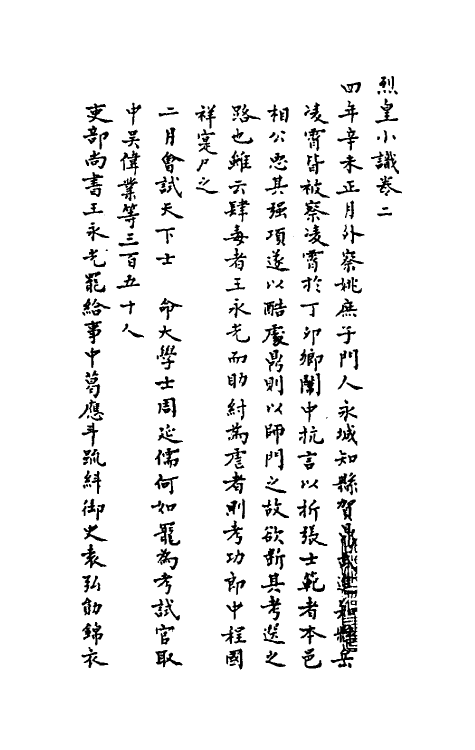 烈皇小識卷二
四年辛未正月外察姚庶子門人永城知縣賀鼎武進知縣岳
凌霄皆被察凌霄於丁卯鄉闈中抗言以折張士範者本邑
相公恶其强項遂以酷處鼎則以師門之故欲斷其考選之
路也雖云肆毒者王永光而助紂為虐者則考功郎中程國
祥寔尸之
二月會試天下士　命大學士周延儒何如寵為考試官取
中吴偉業等三百五十人
吏部尚書王永光罷給事中葛應斗疏糾御史袁弘勛錦衣